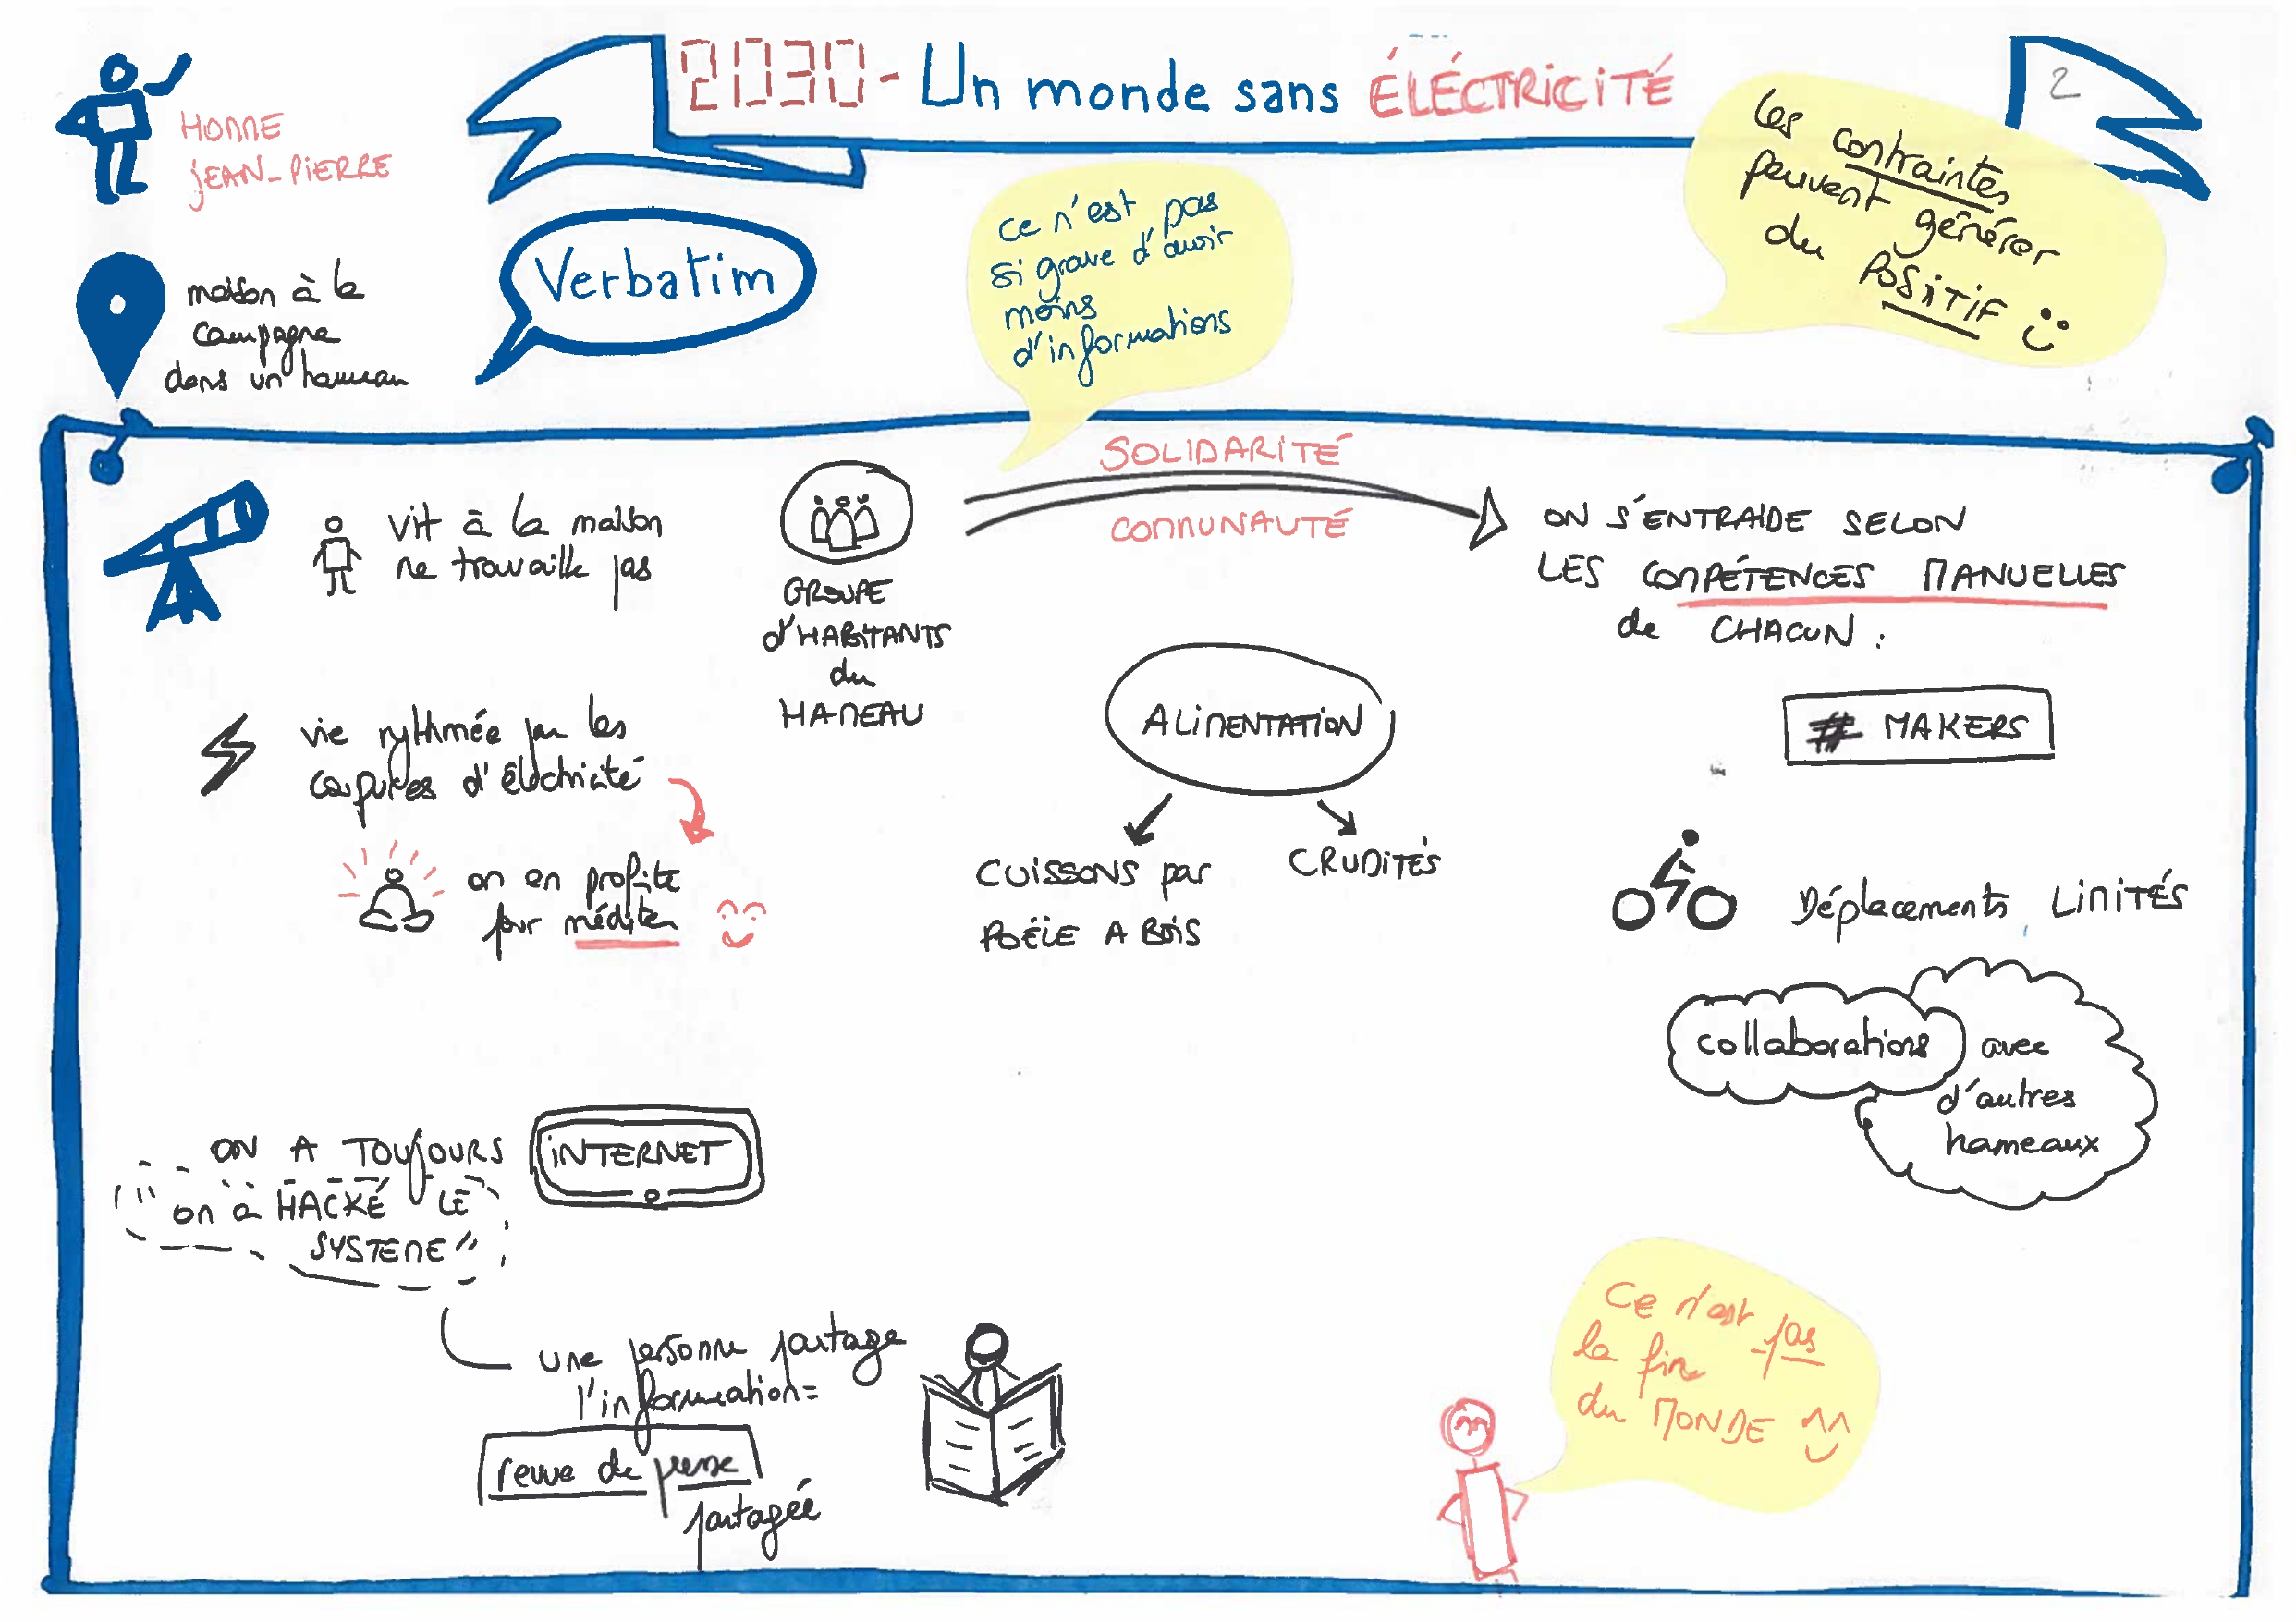 2030 - Un monde sans ÉLÉCTRICITÉ
2
HOMME
JEAN-PIERRE
maison à la
campagne
dans un hameau
Verbatim
ce n'est pas
si grave d'avoir
moins
d'informations
Les contraintes
peuvent générer
du POSITIF
vit à la maison
ne travaille pas
GROUPE
d'HABITANTS
du
HAMEAU
SOLIDARITÉ
COMMUNAUTÉ
ON S'ENTRAIDE SELON
LES COMPÉTENCES MANUELLES
de CHACUN :
# MAKERS
vie rythmée par les
coupures d'électricité
on en profite
pour méditer
ALIMENTATION
CUISSONS par
POËLE A BOIS
CRUDITÉS
Déplacements LIMITÉS
collaborations avec
d'autres
hameaux
ON A TOUJOURS INTERNET
"on a HACKÉ LE
SYSTEME"
une personne partage
l'information =
revue de presse
partagée
Ce n'est pas
la fin
du MONDE